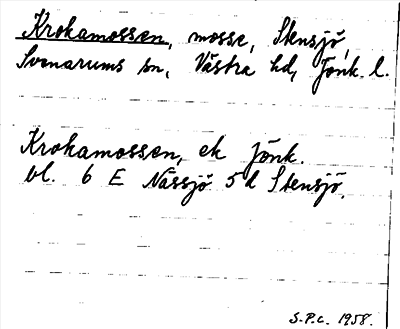 Krokamossen, mosse, Stensjö,
Svenarums sn, Västra hd, Jönk. l.
Krokamossen, ek Jönk.
bl. 6 E Nässjö 5 d Stensjö.
S.P.C. 1958.